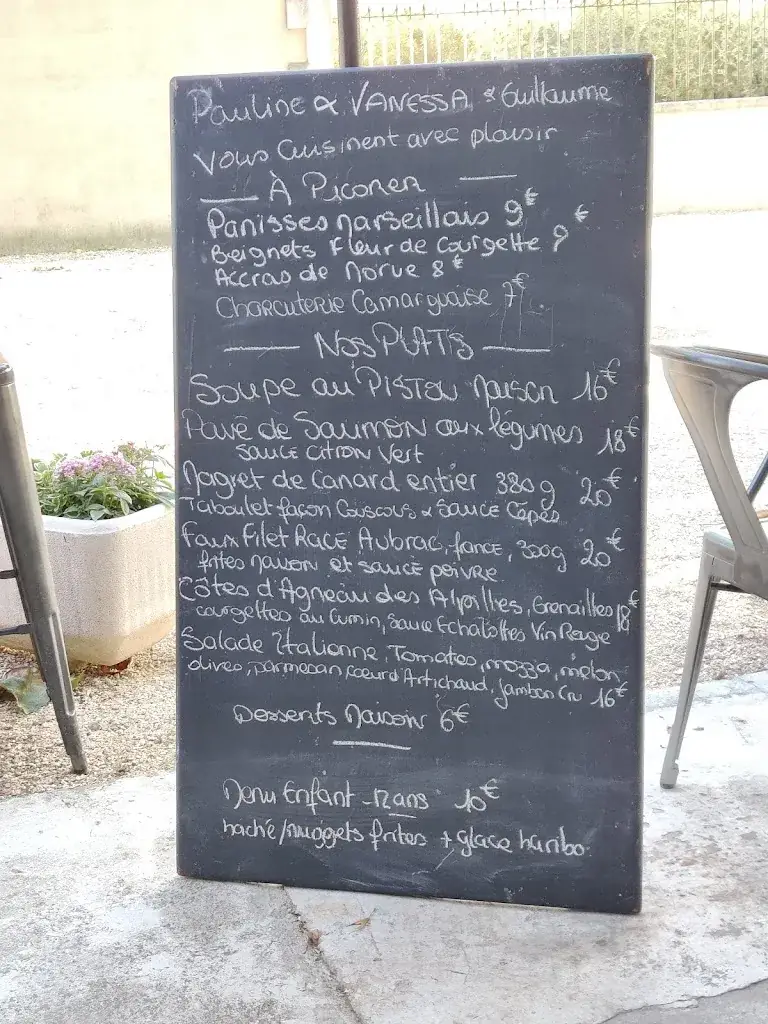 Pauline & VANESSA & Guillaume
Vous Cuisinent avec plaisir
À Picorer
Panisses Marseillais 9€
Beignets Fleur de Courgette 9€
Accras de Morue 8€
Charcuterie Camarguaise 7€
Nos PLATS
Soupe au PISTOU Maison 16€
Pavé de Saumon aux légumes 18€
SAUCE CITRON Vert
Magret de Canard entier 380g 20€
Taboulet façon Couscous & SAUCE Cèpes
Faux Filet RACE Aubrac, france, 300g 20€
frites Maison et sauce poivre
Côtes d'Agneau des Alpilles, Grenailles 18€
courgettes au Cumin, Sauce Echalottes Vin Rouge
Salade Italienne, Tomates, mozza, melon
olives, parmesan, coeurd'Artichaud, jambon Cru 16€
Desserts Maison 6€
Menu Enfant -12ans 10€
haché/nuggets frites + glace haribo